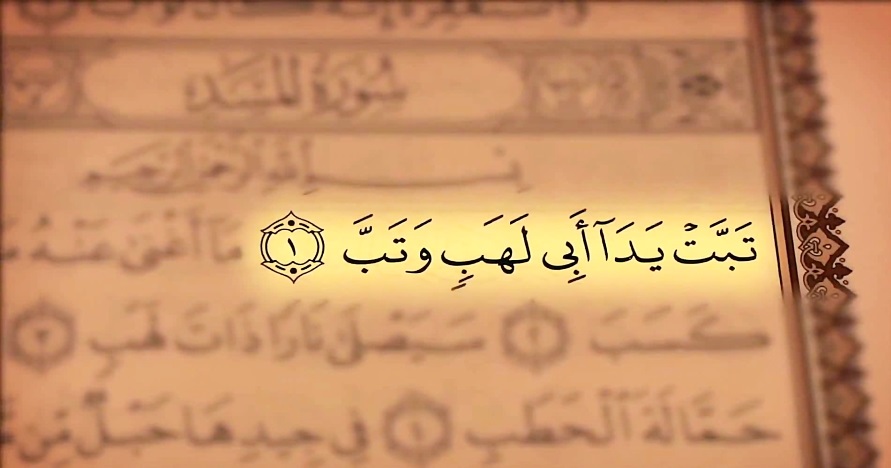 سُورَةُ الْمَسَدِ
بِسْمِ اللَّهِ الرَّحْمَٰنِ الرَّحِيمِ
تَبَّتْ يَدَآ أَبِى لَهَبٍ وَتَبَّ ١ مَآ أَغْنَىٰ عَنْهُ
كَسَبَ ٢ سَيَصْلَىٰ نَارًا ذَاتَ لَهَبٍ ٣
حَمَّالَةَ ٱلْحَطَبِ ٤ فِى جِيدِهَا حَبْلٌ مِّن